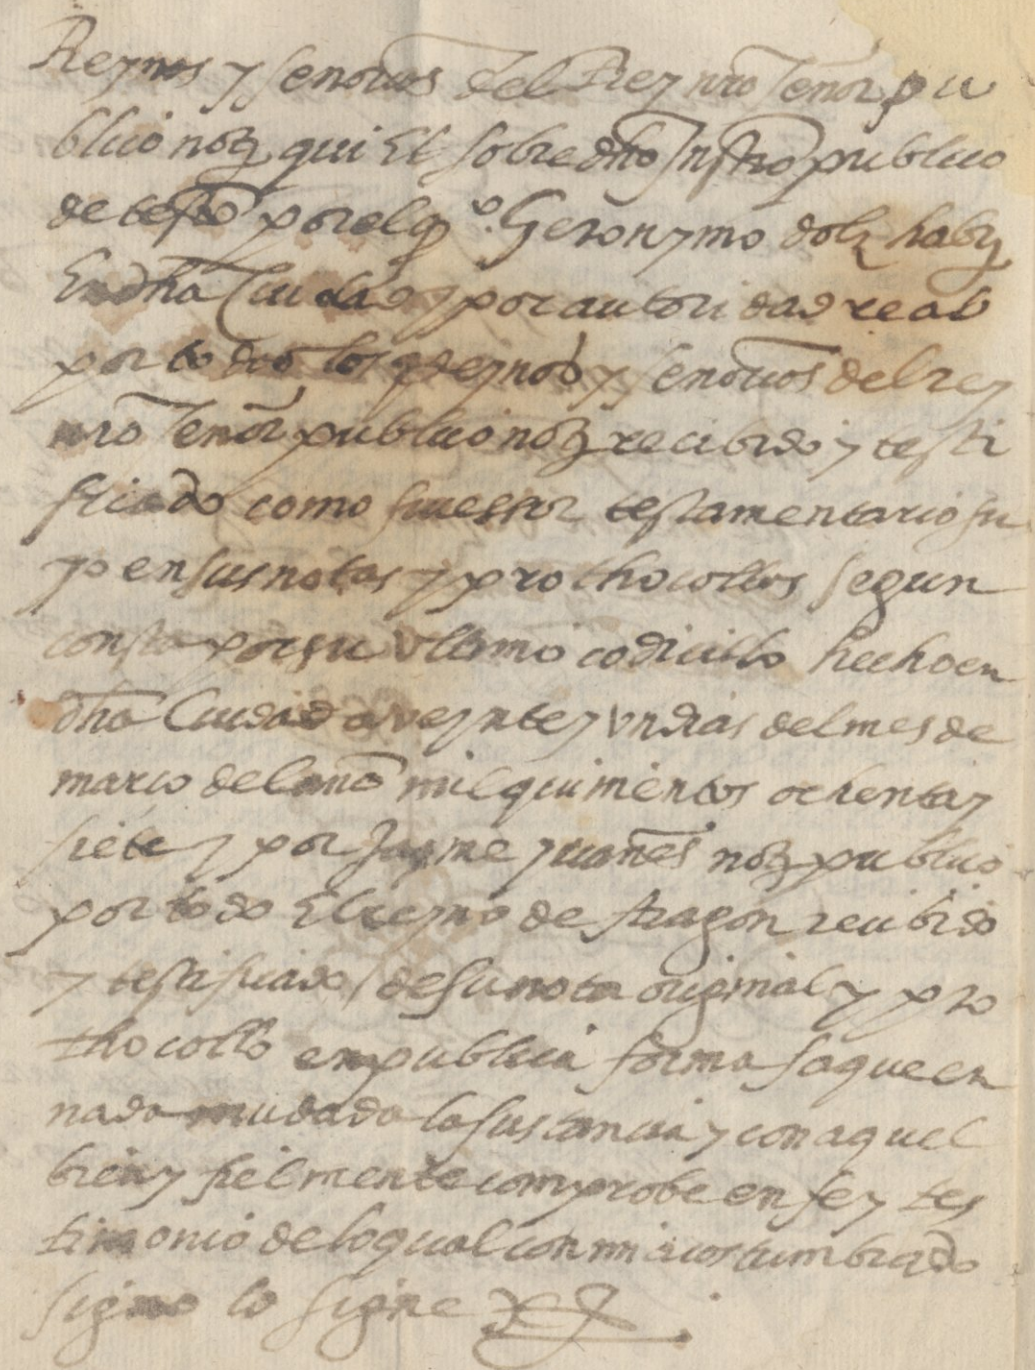 Reynos y senorios del Rey nro señor pu
blico notº qui el sobre dho Instrº publico
de testº por el qº Geronymo dolz habitº
En dha Ciudad y por autoridad real
por todos los Reynos y senorios del rey
nro señor publico notº recibido y testi
ficado como successor testamentario su
yo en sus notas y prothocollos segun
consta por su vltimo codicillo hecho en
dha Ciudad a veynte y vn dias del mes de
março del año mil quinientos ochenta y
siete y por Jayme yuañes notº publico
por todo El reyno de Aragon recibido
y testificado de su nota original y pro
thocollo en publica forma saque en
nada mudada la sustancia y con aquel
bien y fielmente comprobe en fe y tes
timonio de lo qual con mi acostumbrado
signo lo signe